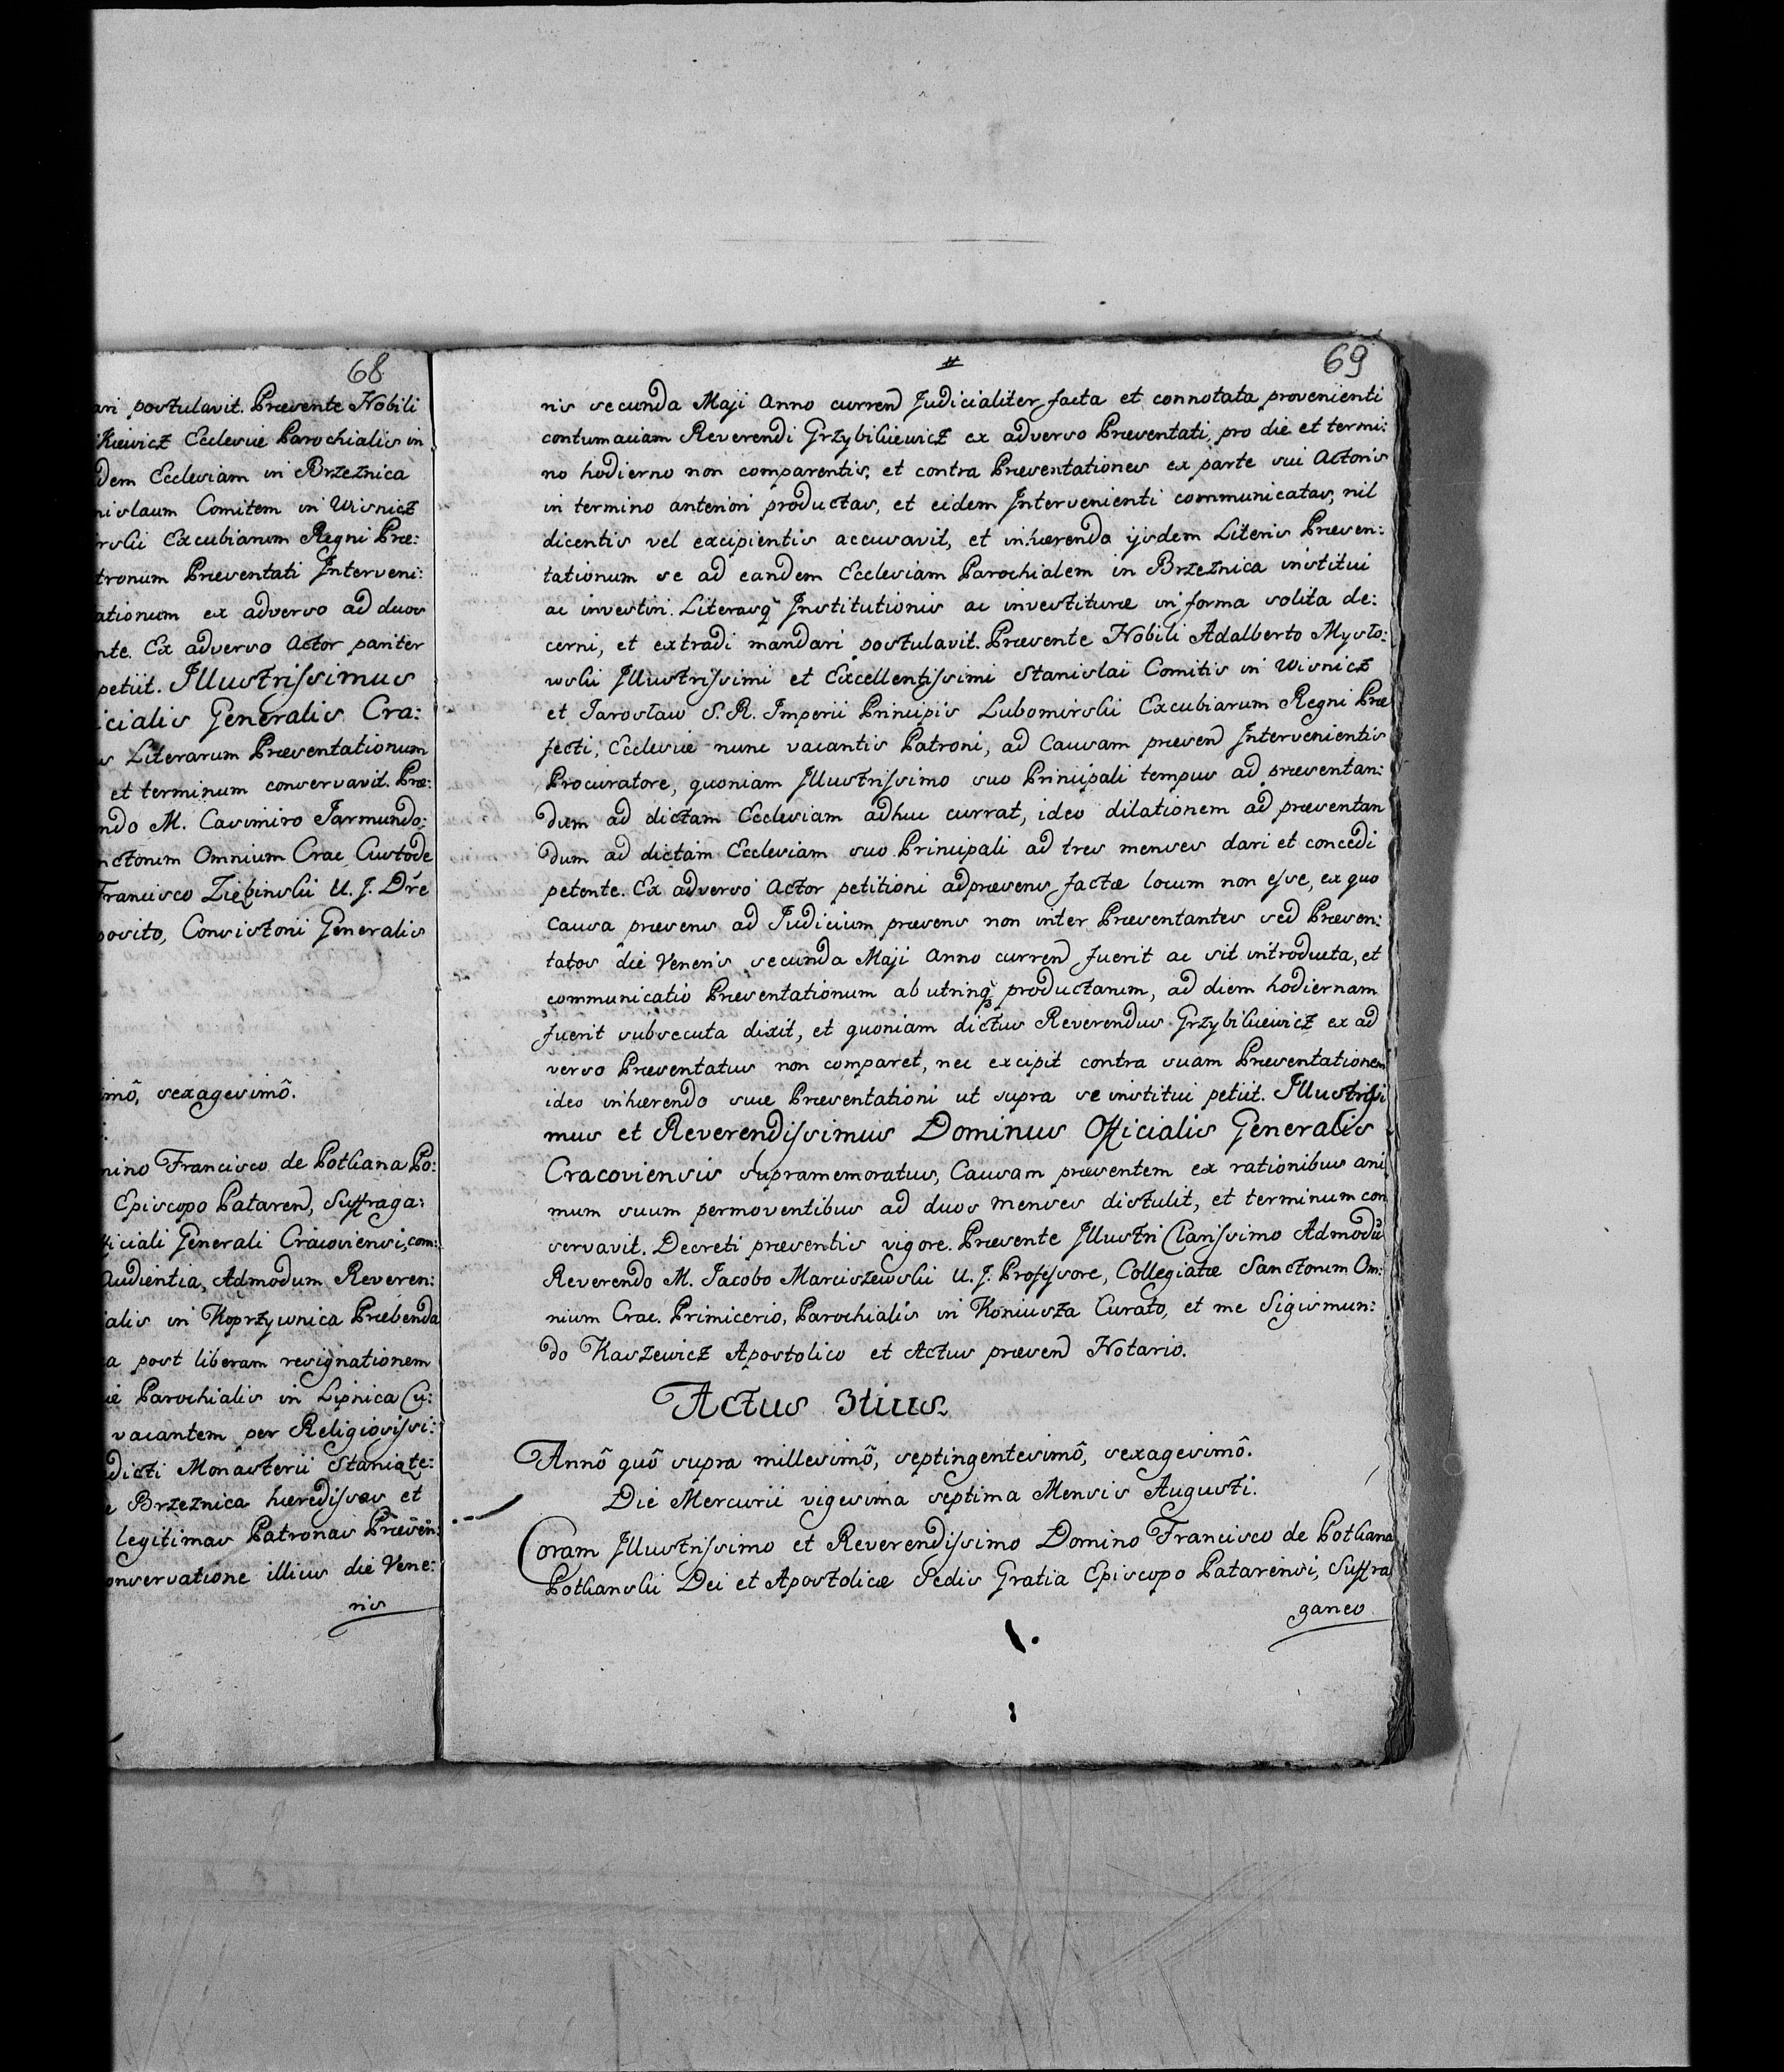 68
ari postulavit. Præsente Nobili
kiewicz Ecclesiæ Parochialis in
dem Ecclesiam in Brzeznica
nislaum Comitem in Wisnicz
irski Excubiarum Regni Præ:
tronum Præsentati Interveni:
ationum ex adverso ad duos
nte. Ex adverso Actor pariter
petiit. Illustrissimus
icialis Generalis Cra:
s Literarum Præsentationum
et terminum conservavit. Præ:
ndo M. Casimiro Jarmundo:
nctorum Omnium Crac. Custode
Francisco Ziębinski U. J. Dre
posito, Consistorii Generalis
imô, sexagesimô.
mino Francisco de Potkana Po:
Episcopo Pataren, Suffraga:
ficiali Generali Cracoviensi, com:
Audientia, Admodum Reveren:
ialis in Koprzywnica Præbenda
a post liberam resignationem
iæ Parochialis in Lipnica Cu:
vacantem per Religiosissi:
dicti Monasterii Staniąte:
e Brzeznica hæredissas et
legitimas Patronas Præsen:
onservatione illius die Vene:
ris
69
ris secunda Maji Anno curren Judicialiter facta et connotata provenienti
contumaciam Reverendi Grzybkiewicz ex adverso Præsentati, pro die et termi:
no hodierno non comparentis, et contra Præsentationes ex parte sui Actoris
in termino anteriori productas, et eidem Intervenienti communicatas, nil
dicentis vel excipientis accusavit, et inhærendo ijsdem Literis Præsen:
tationum se ad eandem Ecclesiam Parochialem in Brzeznica institui
ac investiri. Literasq Institutionis ac investituræ in forma solita de:
cerni, et extradi mandari postulavit. Præsente Nobili Adalberto Mysło:
wski Illustrissimi et Excellentissimi Stanislai Comitis in Wisnicz
et Jarosław S. R. Imperii Principis Lubomirski Excubiarum Regni Præ
fecti, Ecclesiæ nunc vacantis Patroni, ad Causam præsen Intervenientis
Procuratore, quoniam Illustrissimo suo Principali tempus ad præsentan:
dum ad dictam Ecclesiam adhuc currat, ideo dilationem ad præsentan
dum ad dictam Ecclesiam suo Principali ad tres menses dari et concedi
petente. Ex adverso Actor petitioni adpræsens factæ locum non esse, ex quo
Causa præsens ad Judicium præsens non inter Præsentantes sed Præsen:
tatos die Veneris secunda Maji Anno curren fuerit ac sit introducta, et
communicatio Præsentationum ab utrinq productarum, ad diem hodiernam
fuerit subsecuta dixit, et quoniam dictus Reverendus Grzybkiewicz ex ad
verso Præsentatus non comparet, nec excipit contra suam Præsentationem
ideo inhærendo suæ Præsentationi ut supra se institui petiit. Illustrissi
mus et Reverendissimus Dominus Officialis Generalis
Cracoviensis supramemoratus, Causam præsentem ex rationibus ani
mum suum permoventibus ad duos menses distulit, et terminum con
servavit. Decreti præsentis vigore. Præsente Illustri Clarissimo Admodū
Reverendo M. Jacobo Marciszewski U. J. Professore, Collegiatæ Sanctorum Om:
nium Crac. Primicerio, Parochialis in Koniusza Curato, et me Sigismun:
do Kaszewicz Apostolico et Actus præsen Notario.
Actus 3tius.
Annô quô supra millesimô, septingentesimô, sexagesimô.
Die Mercurii vigesima septima Mensis Augusti.
Coram Illustrissimo et Reverendissimo Domino Francisco de Potkana
Potkanski Dei et Apostolicæ Sedis Gratia Episcopo Patarensi, Suffra
ganeo